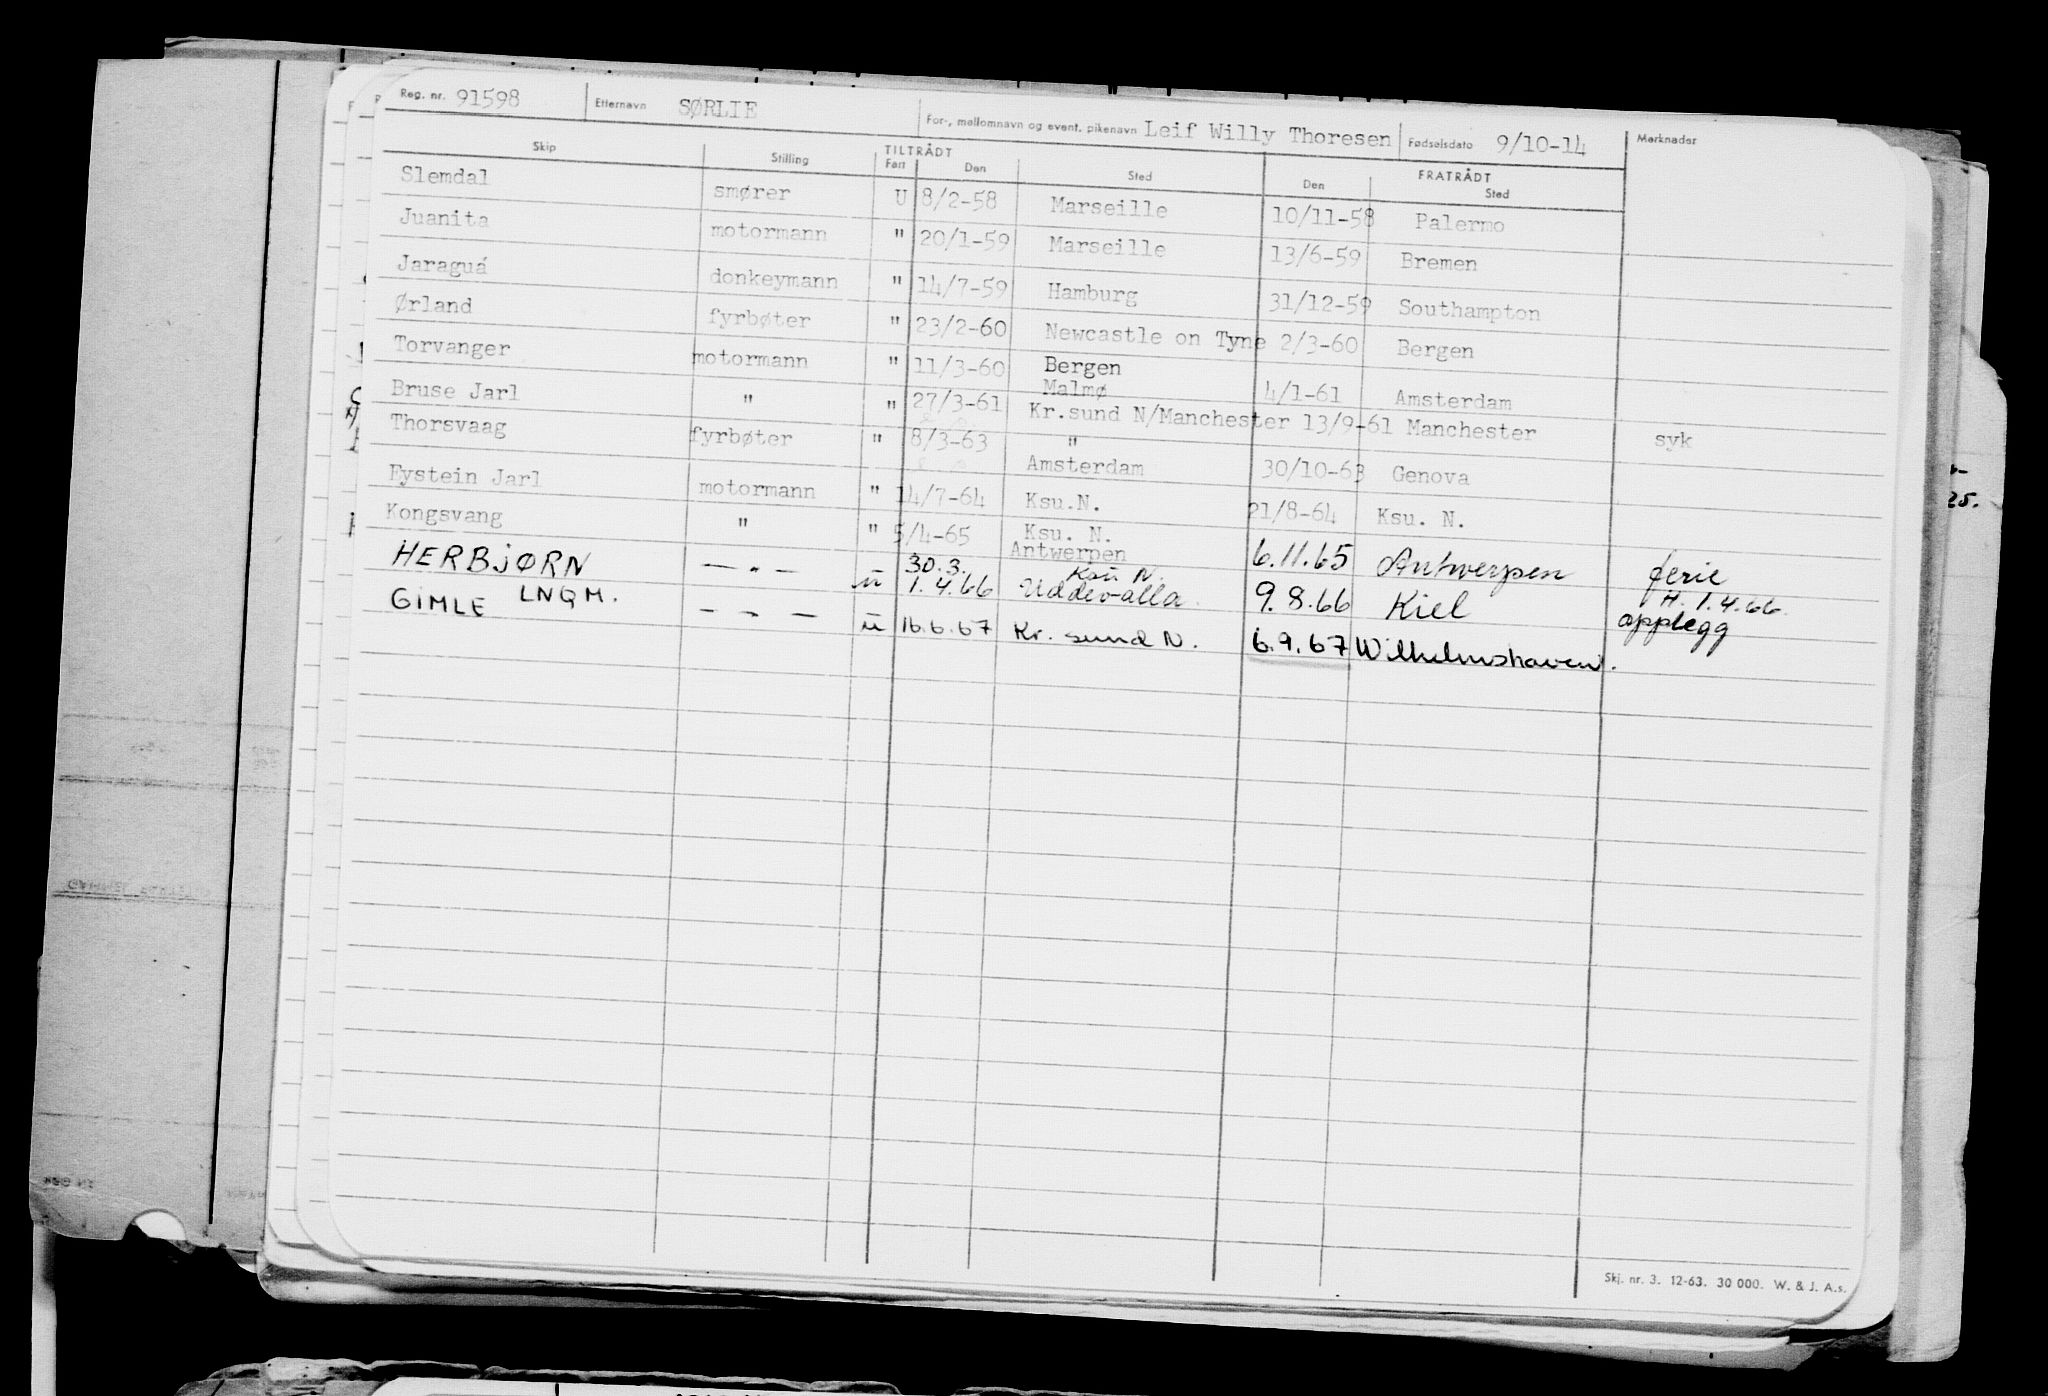 Reg. nr. 91598 Etternavn SØRLIE For-, mellomnavn og event. pikenavn Leif Willy Thoresen Fødselsdato 9/10-14 Merknader
Skip Stilling TILTRÅDT Fart Den Sted FRATRÅDT Den Sted
Slemdal smører U 8/2-58 Marseille 10/11-58 Palermo
Juanita motormann " 20/1-59 Marseille 13/6-59 Bremen
Jaraguá donkeymann " 14/7-59 Hamburg 31/12-59 Southampton
Ørland fyrbøter " 23/2-60 Newcastle on Tyne 2/3-60 Bergen
Torvanger motormann " 11/3-60 Bergen Malmø 4/1-61 Amsterdam
Bruse Jarl " " 27/3-61 Kr.sund N/Manchester 13/9-61 Manchester syk
Thorsvaag fyrbøter " 8/3-63 " Amsterdam 30/10-63 Genova
Eystein Jarl motormann " 14/7-64 Ksu.N. 21/8-64 Ksu. N.
Kongsvang " " 5/4-65 Ksu. N. Antwerpen 6.11.65 Antwerpen ferie
HERBJØRN LNQM. — " — u 30.3. 1.4.66 Ksu N. Uddevalla 9.8.66 Kiel H. 1.4.66 opplegg
GIMLE — " — u 16.6.67 Kr. sund N. 6.9.67 Wilhelmshaven.
Skj. nr. 3. 12-63. 30 000. W. & J. A.s.
25.